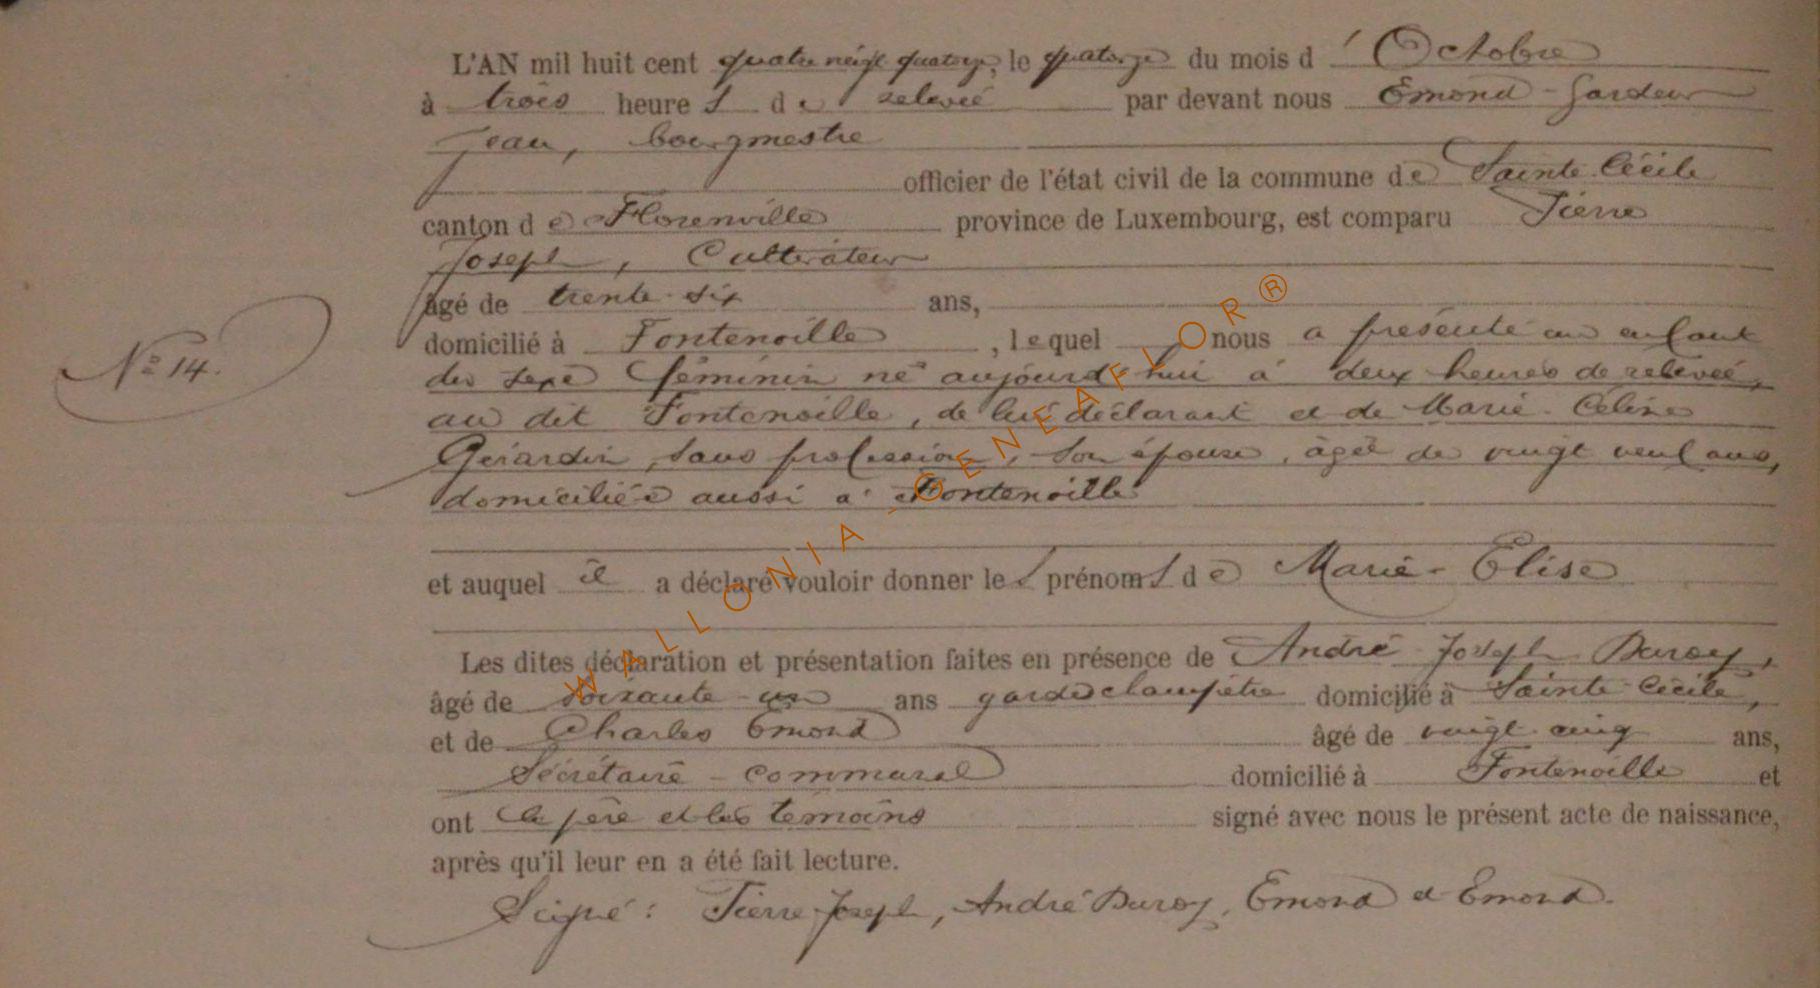 L'AN mil huit cent quatre vingt quatorze, le quatorze du mois d'Octobre
à trois heures de relevée par devant nous Emond-Gardeur
Jean, bourgmestre
officier de l'état civil de la commune de Sainte-Cécile
canton de Florenville province de Luxembourg, est comparu Pierre
Joseph, Cultivateur
âgé de trente-six ans,
domicilié à Fontenoille, lequel nous a présenté un enfant
du sexe féminin né aujourd'hui à deux heures de relevée,
au dit Fontenoille, de lui déclarant et de Marie-Céline
N° 14.
Gérardin, sans profession, son épouse, âgée de vingt neuf ans,
domiciliée aussi à Fontenoille
et auquel il a déclaré vouloir donner les prénoms de Marie-Elise
Les dites déclaration et présentation faites en présence de André Joseph Duroy,
âgé de soixante-un ans garde champêtre domicilié à Sainte-Cécile,
et de Charles Emond âgé de vingt-cinq ans,
Secrétaire-communal domicilié à Fontenoille et
ont le père et les témoins signé avec nous le présent acte de naissance,
après qu'il leur en a été fait lecture.
Signé: Pierre Joseph, André Duroy, Emond et Emond.
WALLONIA-GENEAFLOR®